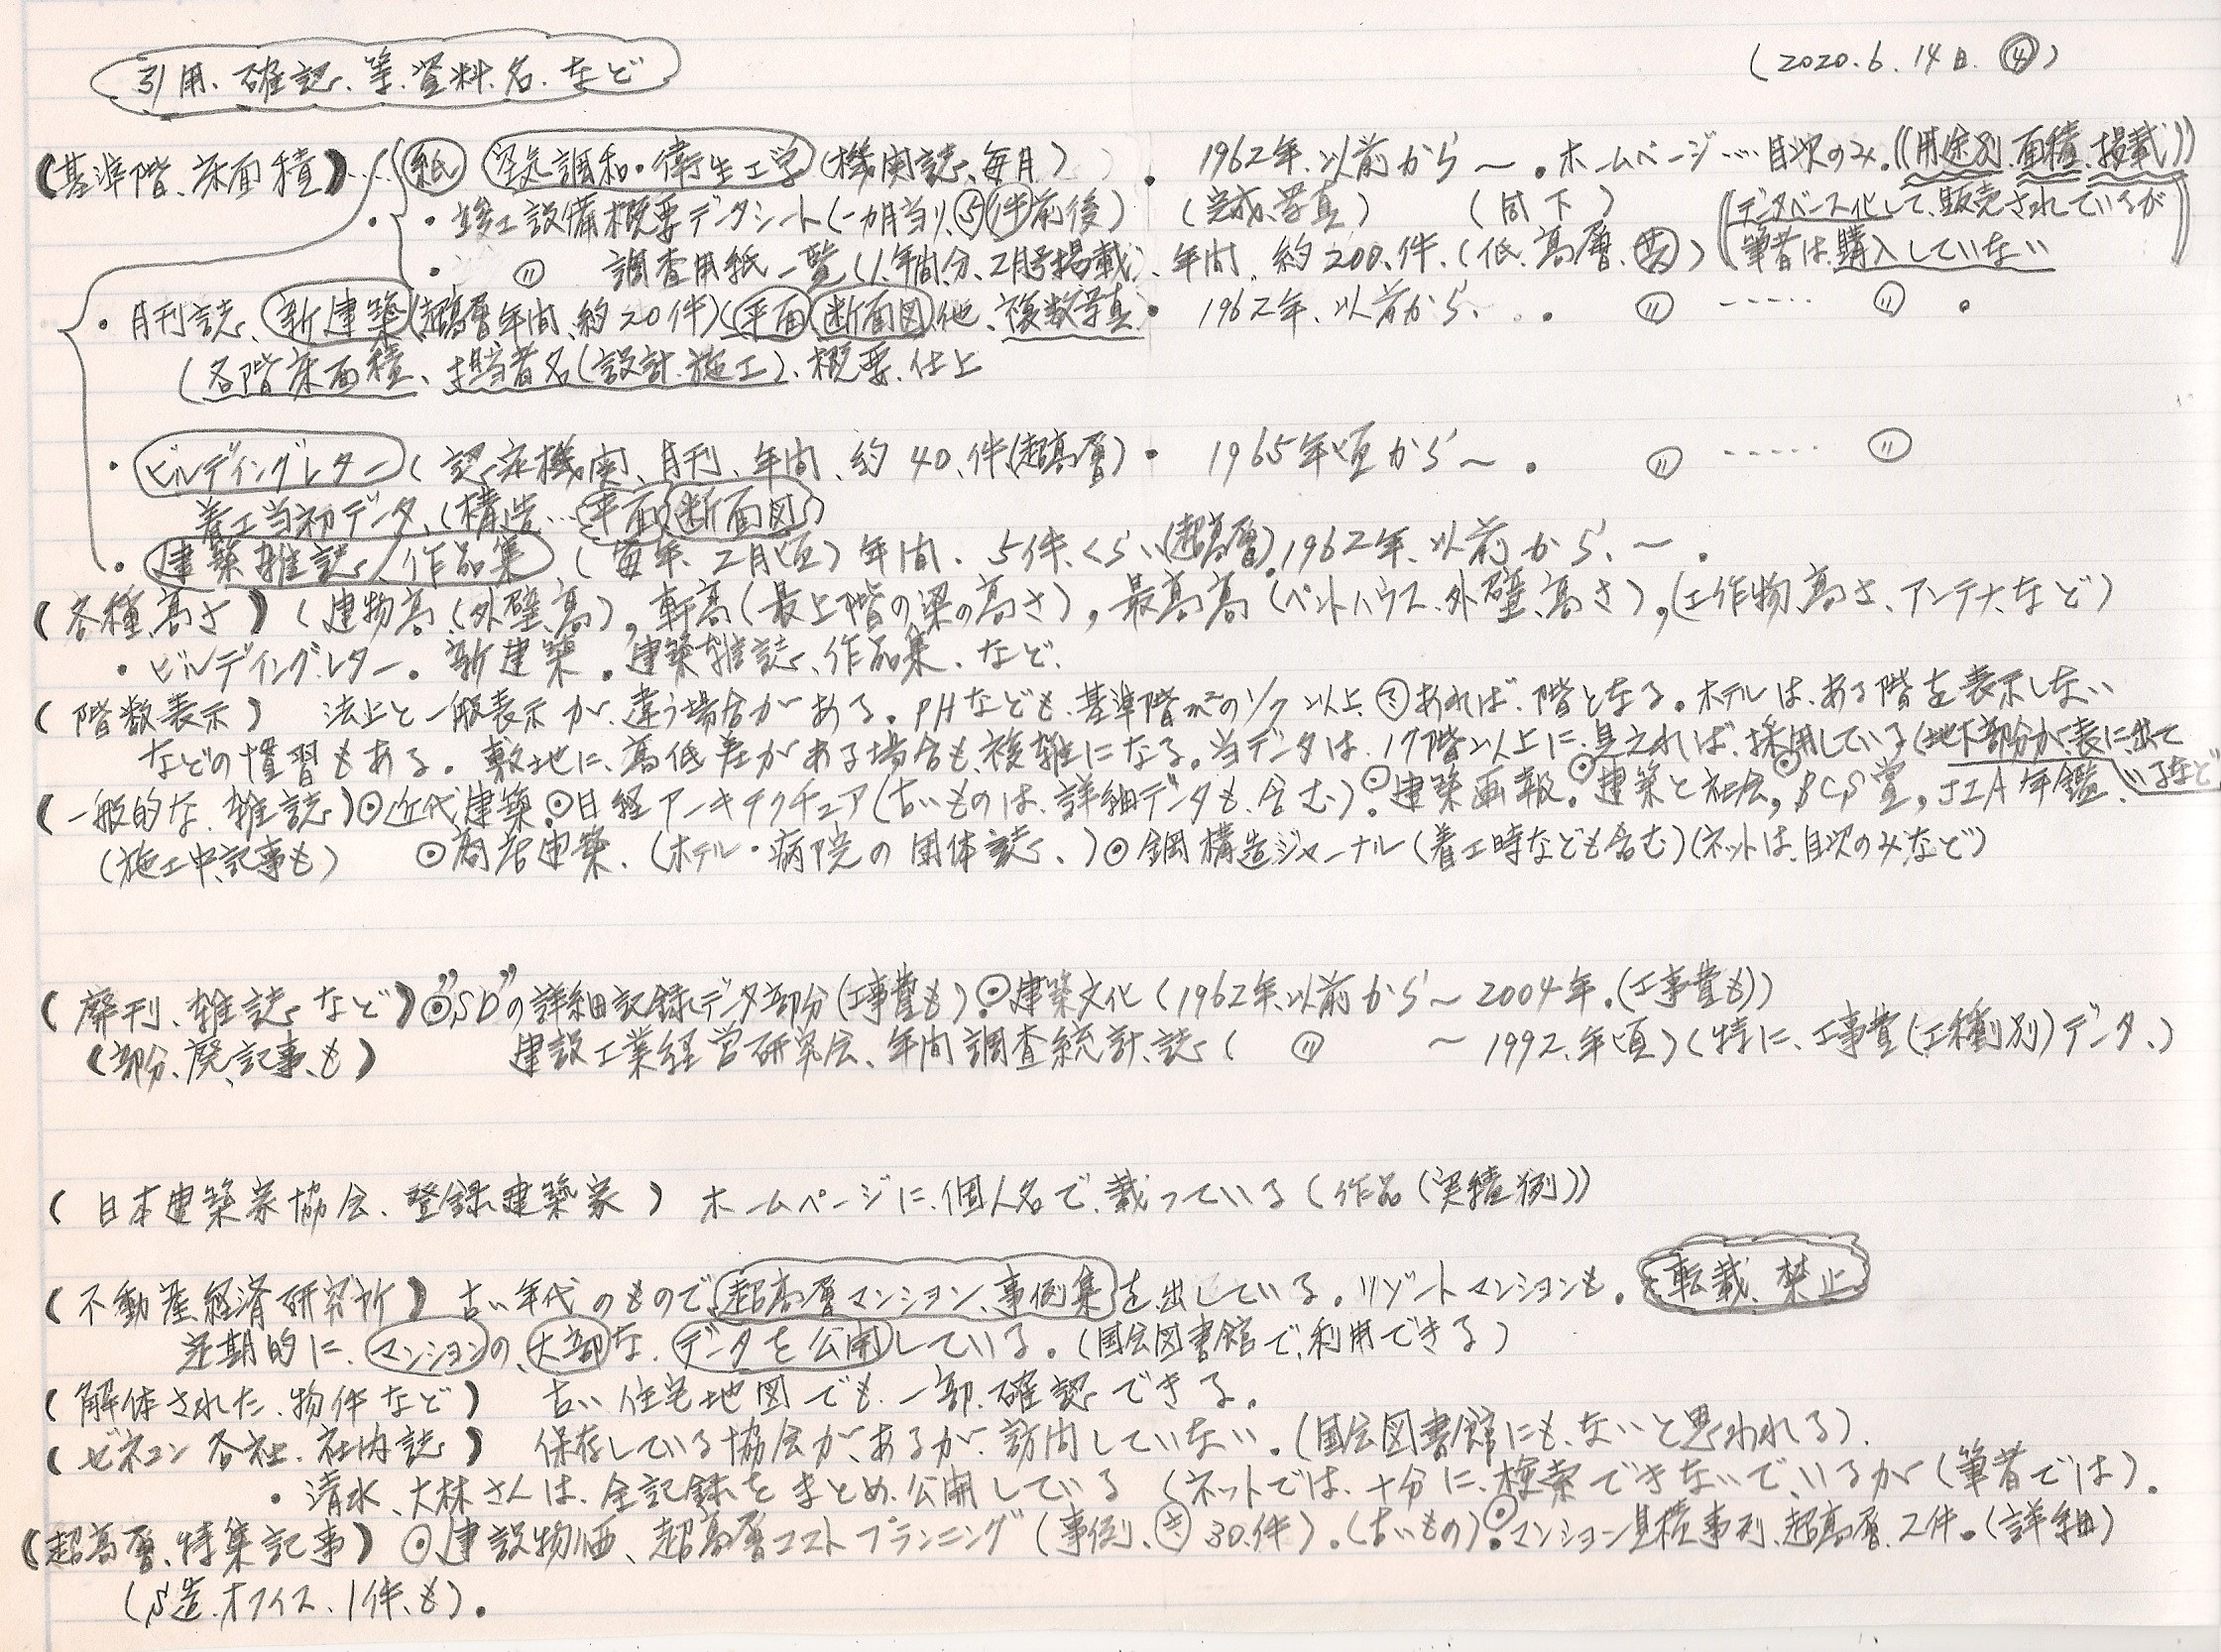 引用、確認、等、資料、名、など
(2020.6.14日 ④)
(基準階、床面積)…紙 空気調和・衛生工学(機関誌、毎月)・ 1962年、以前から〜。ホームページ…目次のみ。((用途別、面積、掲載))
・竣工設備概要データシート(一カ月当り、⑤件前後) (完成、写真) (同下) (データベース化して、販売されているが
・ 〃 調査用紙一覧(1年間分、2月号掲載)、年間、約200、件、(低、高層、共) 筆者は、購入していない
・月刊誌、新建築(超高層年間、約20件)(平面 断面図、他、複数写真・ 1962年、以前から、. . 〃 ----- 〃 。
(各階床面積、担当者名(設計、施工)、概要、仕上
・ビルディングレター(認定機関、月刊、年間、約40、件(超高層)・ 1965年頃から〜。 〃 ----- 〃
着工当初データ、(構造…平面 断面図)
・建築雑誌/作品集 (毎年、2月頃)年間、5件、くらい(超高層)。1962年、以前から、〜。
(各種、高さ) (建物高(外壁、高)。軒高(最上階の梁の高さ)，最高高(ペントハウス、外壁、高さ)，(工作物、高さ、アンテナ、など)
・ビルディングレター。新建築。建築雑誌、作品集、など、
(階数表示) 法上と一般表示が、違う場合がある。PHなども、基準階㎡の1/7以上、あれば、階となる。ホテルは、ある階を表示しない
などの慣習もある。敷地に、高低差がある場合も、複雑になる。当データは、17階以上に見えれば、採用している(地下部分が、表に出て
いるなど)
(一般的な、雑誌)⊙近代建築。⊙日経アーキテクチュア(古いものは、詳細データも、含む)。⊙建築画報。⊙建築と社会，⊙BCS賞，JIA年鑑、
(施工中、記事も) ⊙商店建築、(ホテル・病院の団体誌、)⊙鋼構造ジャーナル(着工時なども含む)(ネットは、目次のみ、など)
(廃刊、雑誌、など)⊙"SD"の詳細記録、データ部分(工事費も)。⊙建築文化(1962年、以前から〜2004年。(工事費も))
(部分、廃、記事、も) 建設工業経営研究会、年間調査統計、誌( 〃 〜1992、年頃)(特に、工事費(工種別)データ、)
(日本建築家協会、登録建築家) ホームページに、個人名で、載っている(作品(実績例))
(不動産経済研究所) 古い年代のもので、超高層マンション、事例集を出している。リゾートマンションも。転載、禁止
定期的に、マンションの、大部な、データを公開している。(国会図書館で、利用できる)
(解体された、物件など) 古い住宅地図でも、一部、確認できる。
(ゼネコン各社、社内誌) 保存している協会が、あるが、訪問していない。(国会図書館にも、ないと思われる)。
・清水、大林さんは、全記録をまとめ、公開している (ネットでは、十分に、検索できないで、いるが(筆者では)。
(超高層、特集記事) ⊙建設物価、超高層コストプランニング(事例、30、件)。(古いもの)。⊙マンション見積事例、超高層、2件。(詳細)
(S造、オフィス、1件、も)。